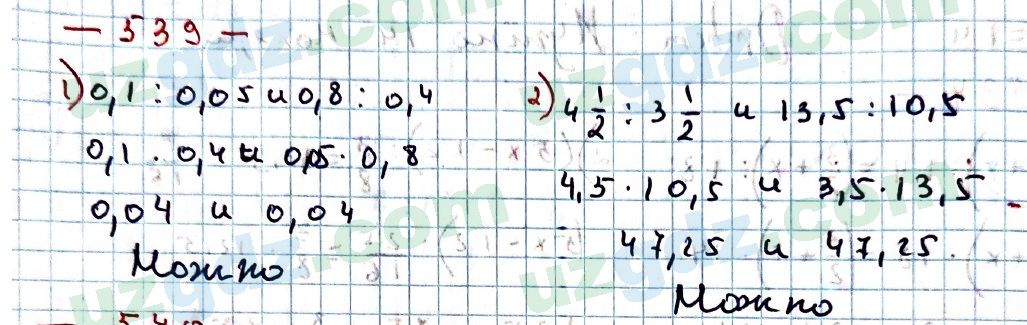 — 539 —
1) 0,1 : 0,05 и 0,8 : 0,4
0,1 · 0,4 и 0,05 · 0,8
0,04 и 0,04
Можно
2) 4 1/2 : 3 1/2 и 13,5 : 10,5
4,5 · 10,5 и 3,5 · 13,5
47,25 и 47,25
Можно
uzgdz.com